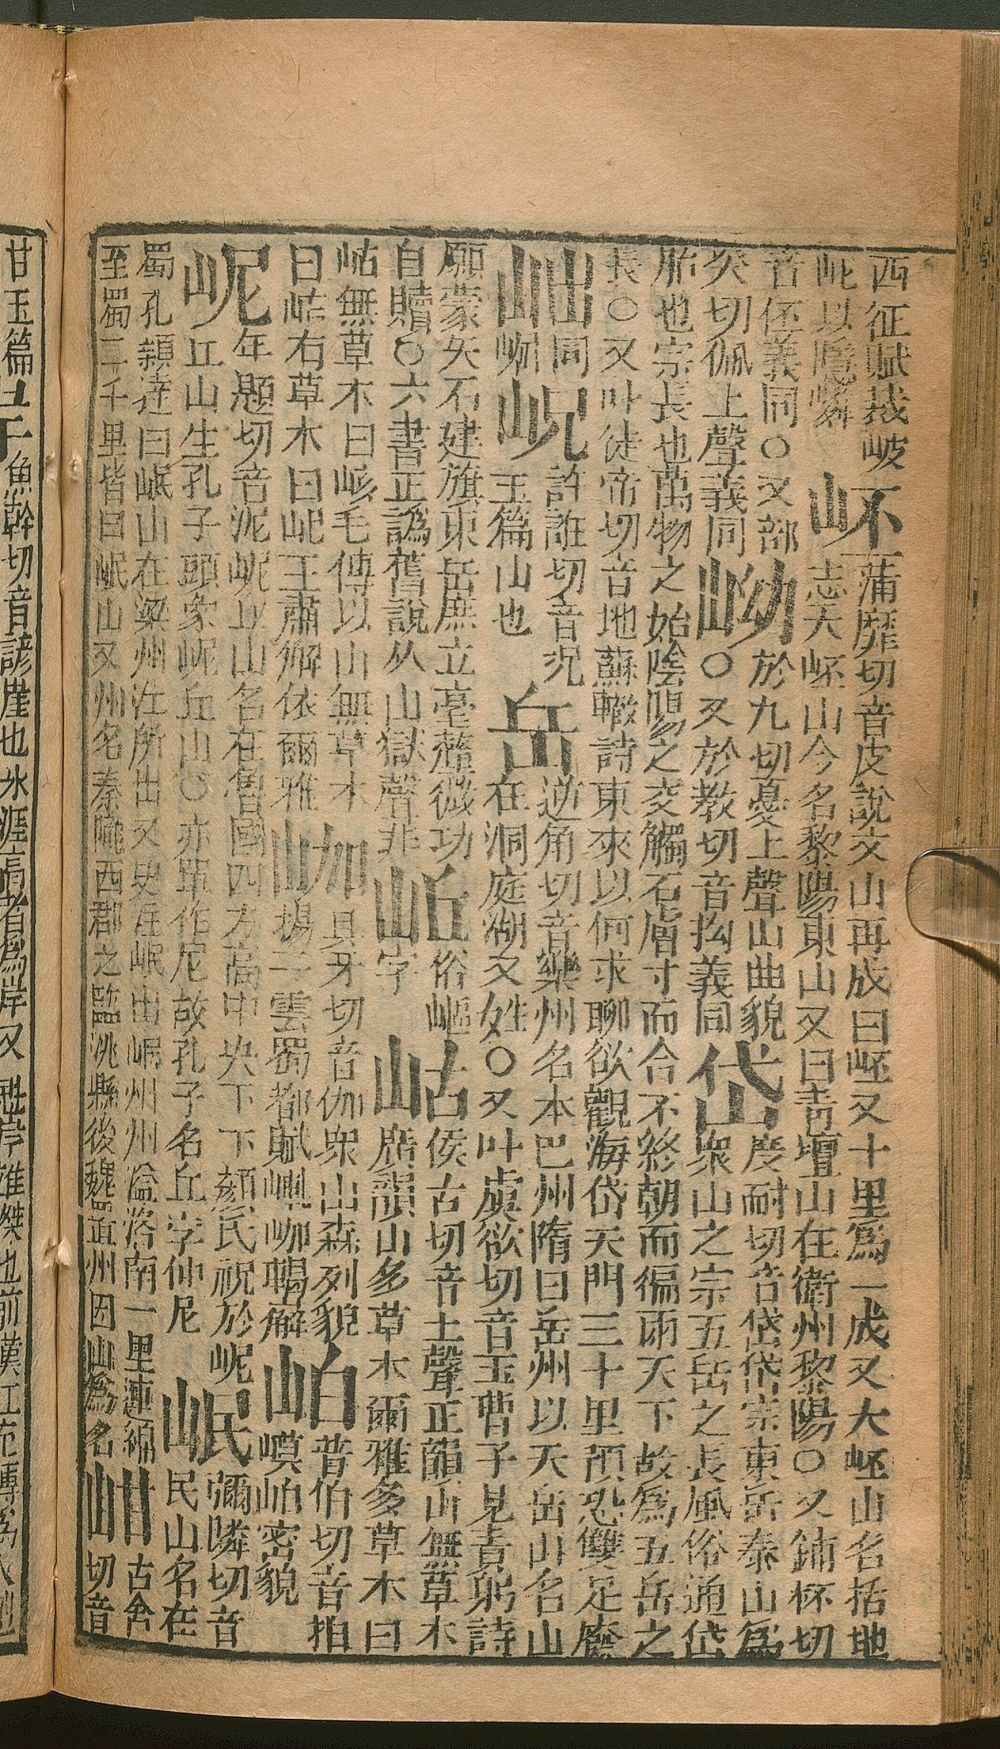 西征賦裁岥
岮以隱嶙
岯蒲靡切音皮說文山再成曰岯又十里爲一成又大岯山名括地
志大岯山今名黎陽東山又曰靑壇山在衛州黎陽○又鋪杯切
音伾義同○又部
癸切伾上聲義同
岰於九切憂上聲山曲貌
○又於教切音拗義同
岱度耐切音代岱宗東岳泰山爲
衆山之宗五岳之長風俗通岱
胎也宗長也萬物之始陰陽之交觸石膚寸而合不終朝而徧雨天下故爲五岳之
長○又叶徒帝切音地蘇轍詩東來以何求聊欲觀海岱天門三十里預恐雙足廢
同
岲許誑切音況
玉篇山也
岳逆角切音樂州名本巴州隋曰岳州以天岳山名山
在洞庭湖又姓○又叶虞欲切音玉曹子見責躬詩
願蒙矢石建旗東岳庶立毫釐微功
自贖○六書正譌舊說从山獄聲非
岴俗嶇
字
岵侯古切音土聲正韻山無草木
廣韻山多草木爾雅多草木曰
岵無草木曰峐毛傳以山無草木
曰岵有草木曰屺王肅解依爾雅
㘫具牙切音伽衆山森列貌
揚子雲蜀都賦
岶普伯切音拍
嗼岶密貌
岮年題切音泥岮丘山名在魯國四方高中央下下顏氏祝於岮
丘山生孔子頭象岮丘山○亦單作尼故孔子名丘字仲尼
岷彌隣切音
民山名在
蜀孔穎達曰岷山在梁州江所出又史注岷山岷州州溢洛南一里連綿
至蜀二千里皆曰岷山又州名秦隴西郡之臨洮縣後魏置州因山爲名
古含
切音
甘玉篇
魚幹切音諺崖也水涯